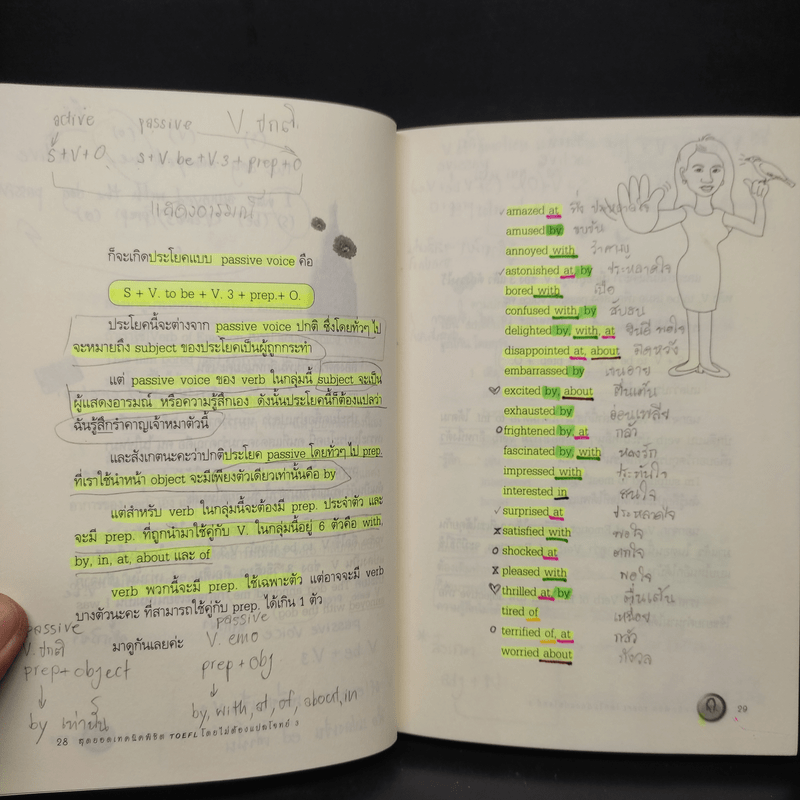 active passive V. ปกติ
S+V+O. S+V. be+V.3+prep+O
เรื่องอารมณ์
ก็จะเกิดประโยคแบบ passive voice คือ
S + V. to be + V. 3 + prep.+ O.
ประโยคนี้จะต่างจาก passive voice ปกติ ซึ่งโดยทั่วๆ ไป
จะหมายถึง subject ของประโยคเป็นผู้ถูกกระทำ
แต่ passive voice ของ verb ในกลุ่มนี้ subject จะเป็น
ผู้แสดงอารมณ์ หรือความรู้สึกเอง ดังนั้นประโยคนี้ก็ต้องแปลว่า
ฉันรู้สึกรำคาญเจ้าหมาตัวนี้
และสังเกตนะคะว่าปกติประโยค passive โดยทั่วๆ ไป prep.
ที่เราใช้นำหน้า object จะมีเพียงตัวเดียวเท่านั้นคือ by
แต่สำหรับ verb ในกลุ่มนี้จะต้องมี prep. ประจำตัว และ
จะมี prep. ที่ถูกนำมาใช้คู่กับ V. ในกลุ่มนี้อยู่ 6 ตัวคือ with,
by, in, at, about และ of
verb พวกนี้จะมี prep. ใช้เฉพาะตัว แต่อาจจะมี verb
บางตัวนะคะ ที่สามารถใช้คู่กับ prep. ได้เกิน 1 ตัว
มาดูกันเลยค่ะ
passive
V. ปกติ
prep+object
by เท่านั้น
passive
V. emo
prep+obj
by, with, at, of, about, in
28 สุดยอดเทคนิคพิชิต TOEFL โดยไม่ต้องแปลโจทย์ 3
amazed at ทึ่ง ประหลาดใจ
amused by ขบขัน
annoyed with รำคาญ
astonished at by ประหลาดใจ
bored with เบื่อ
confused with, by สับสน
delighted by, with, at ยินดี พอใจ
disappointed at, about ผิดหวัง
embarrassed by เขินอาย
excited by, about ตื่นเต้น
exhausted by อ่อนเพลีย
frightened by, at กลัว
fascinated by, with หลงรัก
impressed with ประทับใจ
interested in สนใจ
surprised at ประหลาดใจ
satisfied with พอใจ
shocked at ตกใจ
pleased with พอใจ
thrilled at, by ตื่นเต้น
tired of เหนื่อย
terrified of, at กลัว
worried about กังวล
29